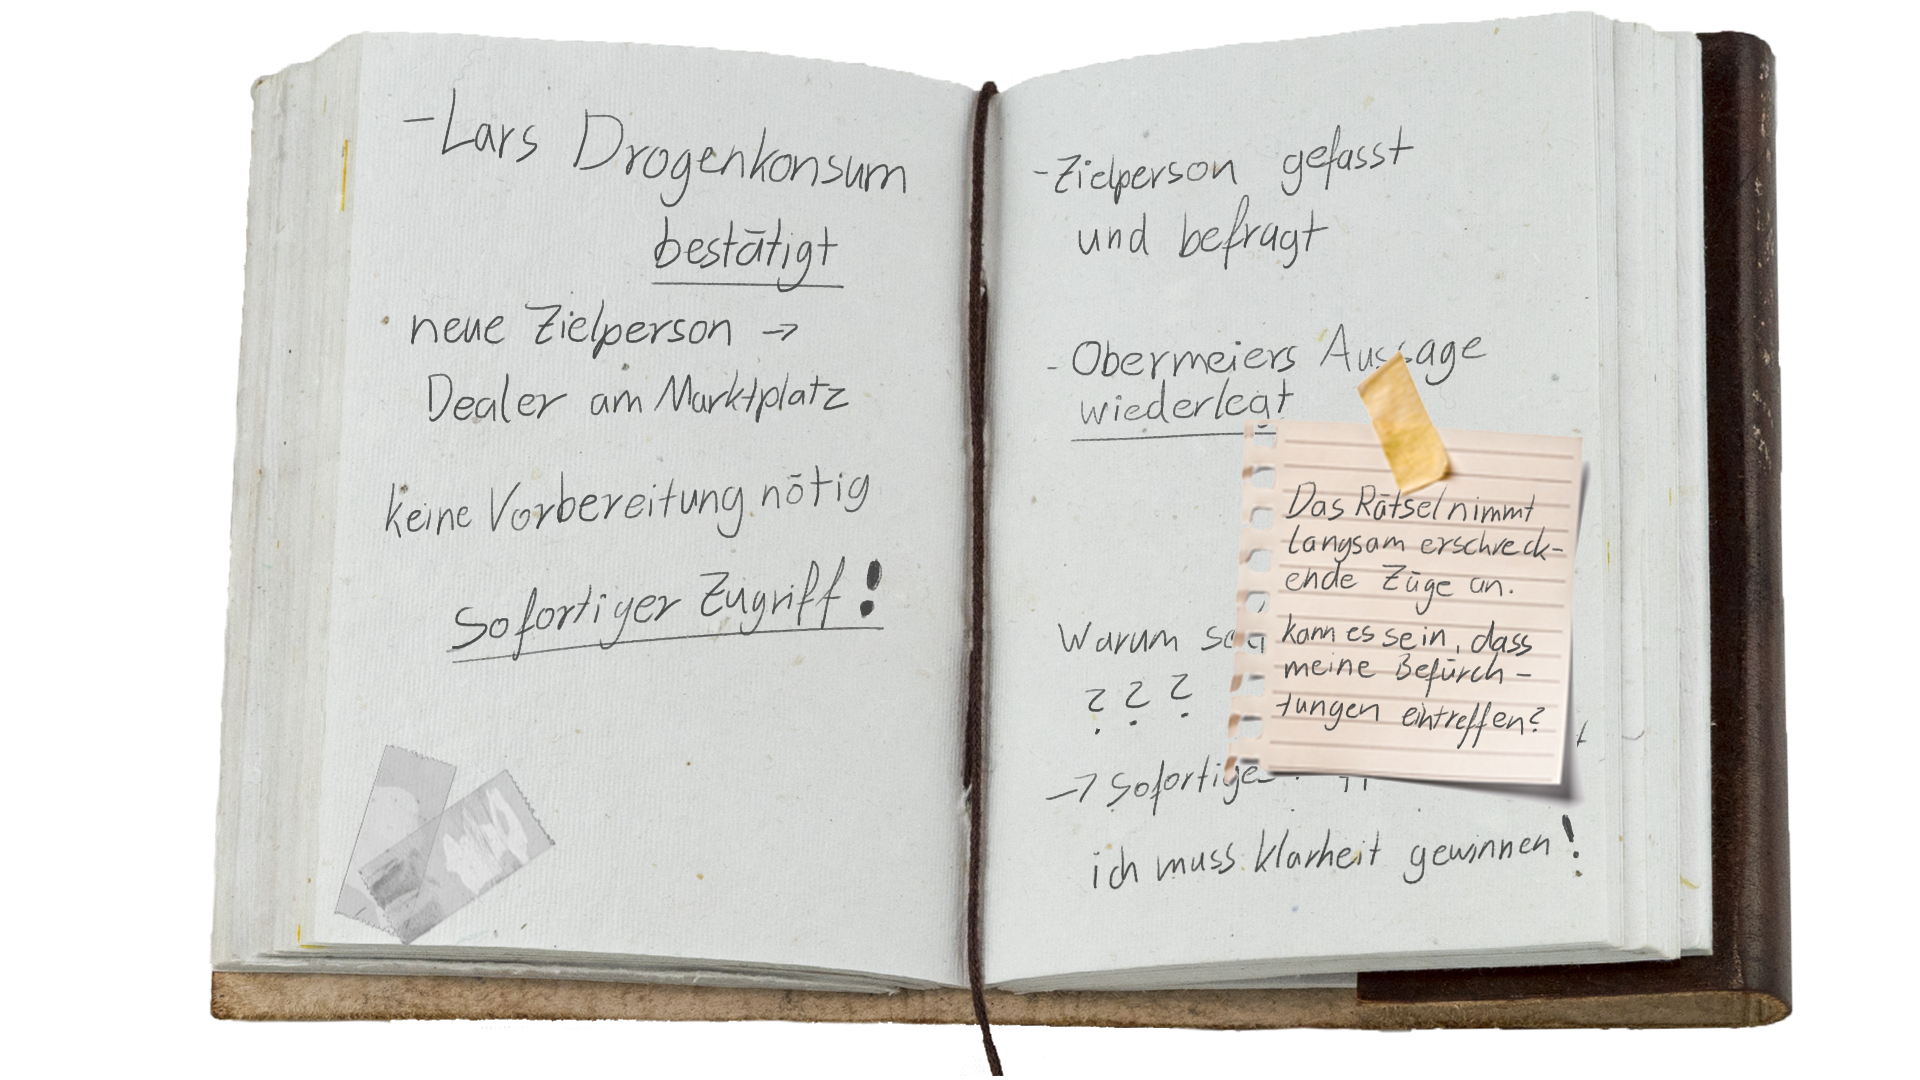 - Lars Drogenkonsum
bestätigt
neue Zielperson →
Dealer am Marktplatz
keine Vorbereitung nötig
Sofortiger Zugriff!
- Zielperson gefasst
und befragt
- Obermeiers Aussage
wiederlegt
Warum
? ? ?
→
ich muss klarheit gewinnen!
Das Rätsel nimmt
langsam erschreck-
ende Züge an.
kann es sein, dass
meine Befürch-
tungen eintreffen?